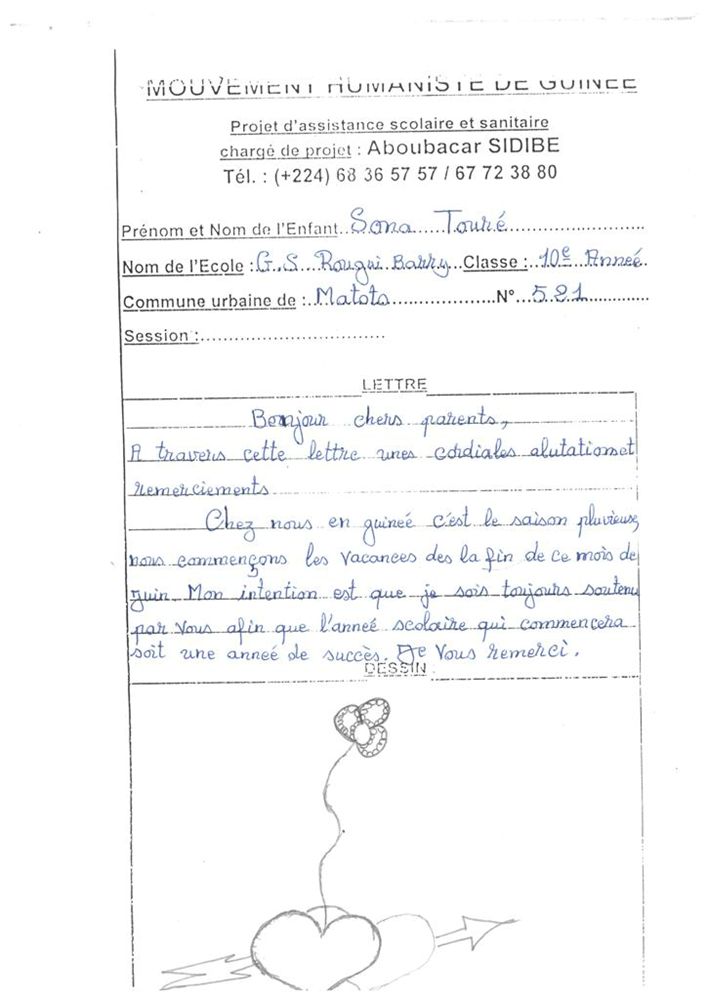 MOUVEMENT HUMANISTE DE GUINEE
Projet d'assistance scolaire et sanitaire
chargé de projet : Aboubacar SIDIBE
Tél. : (+224) 68 36 57 57 / 67 72 38 80
Prénom et Nom de l'Enfant..Sona Touré
Nom de l'Ecole : G.S Rougui Barry Classe : 10e Anneé.
Commune urbaine de : Matoto N° 521
Session :
LETTRE
Bonjour chers parents,
A travers cette lettre unes cordiales alutations et
remerciements
Chez nous en guineé c'est le saison pluvieuse,
nous commençons les vacances des la fin de ce mois de
juin Mon intention est que je sois toujours soutenu
par vous afin que l'anneé scolaire qui commencera
soit une anneé de succès. Je vous remerci.
DESSIN